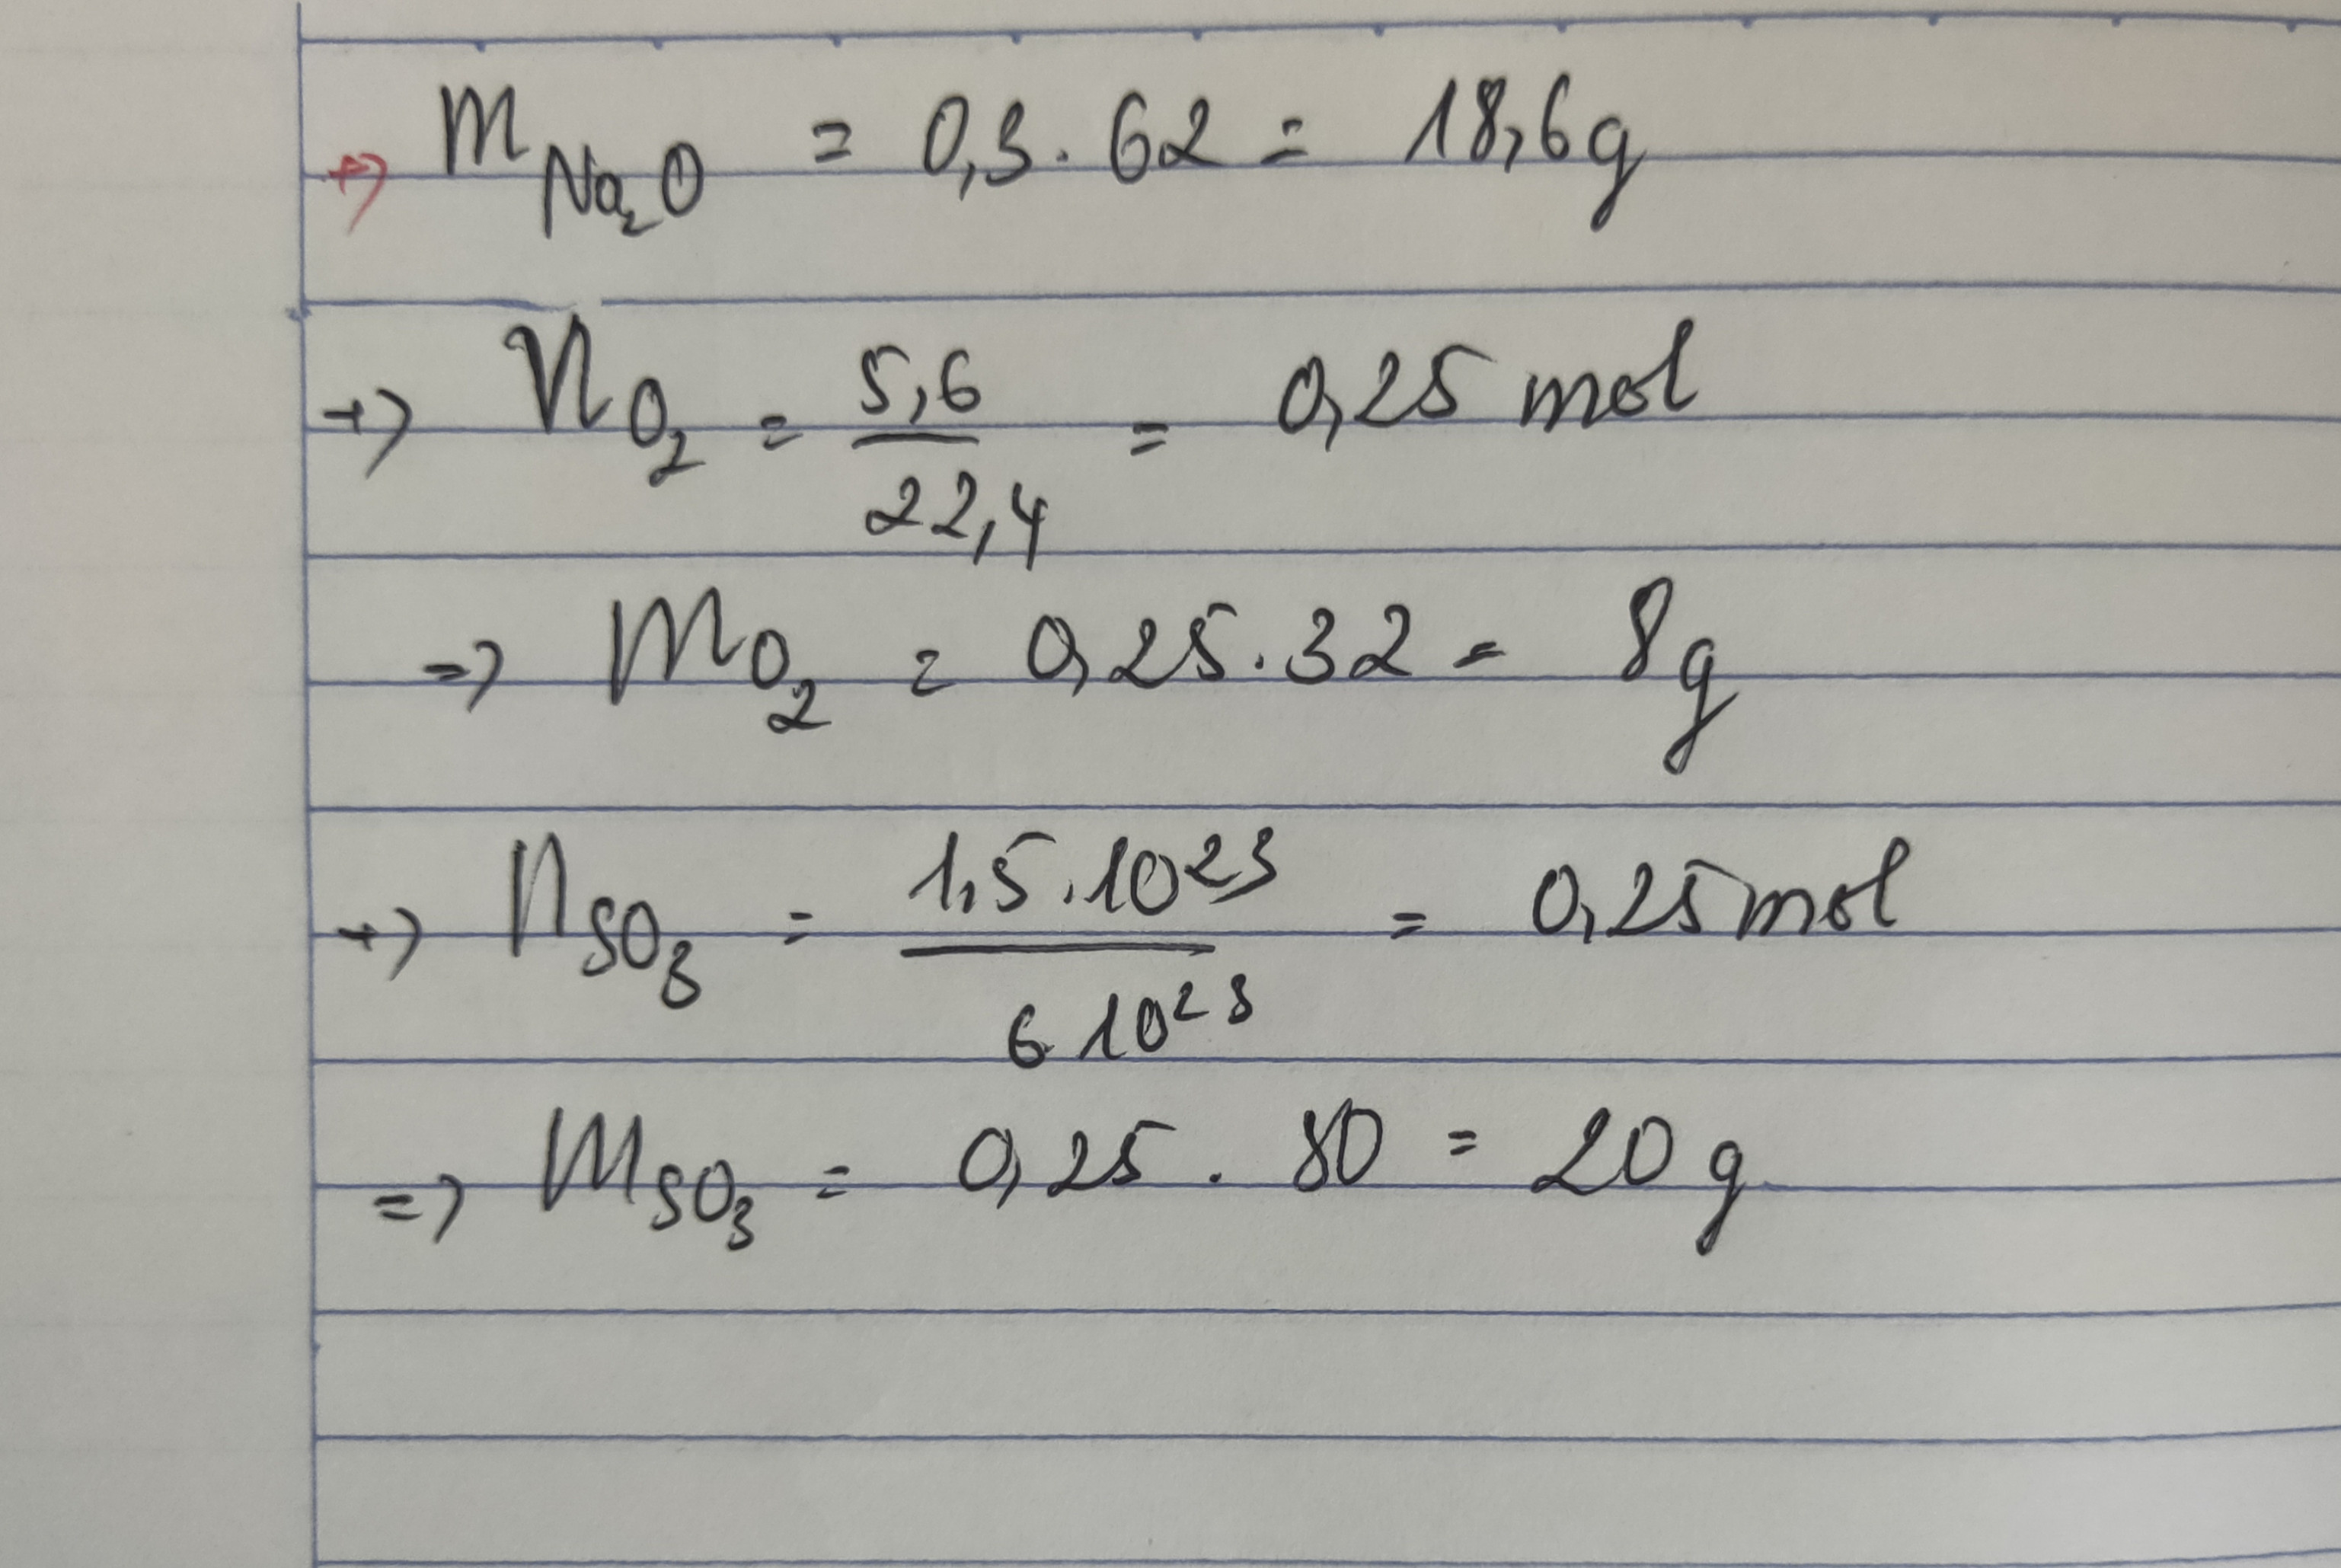 +) m Na₂O = 0,3 . 62 = 18,6g
+) n O₂ = 5,6 / 22,4 = 0,25 mol
=) m O₂ = 0,25 . 32 = 8g
+) n SO₃ = 1,5 . 10²³ / 6.10²³ = 0,25 mol
=) m SO₃ = 0,25 . 80 = 20 g